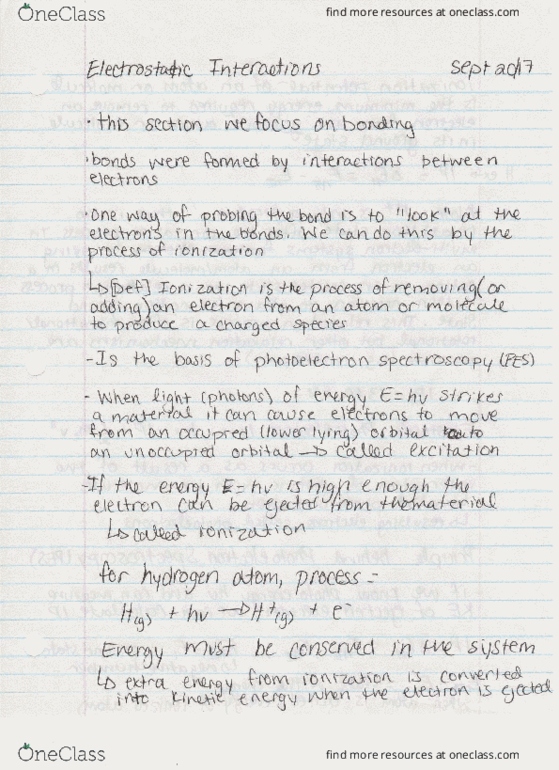 OneClass
find more resources at oneclass.com
Electrostatic Interactions Sept 20/17
· this section we focus on bonding
· bonds were formed by interactions between
electrons
· One way of probing the bond is to "look" at the
electron's in the bonds. We can do this by the
process of ionization
↳ [Def] Ionization is the process of removing (or
adding) an electron from an atom or molecule
to produce a charged species
- Is the basis of photoelectron spectroscopy (PES)
- When light (photons) of energy E=hv strikes
a material it can cause electrons to move
from an occupied (lower lying) orbital to
an unoccupied orbital → called excitation
- If the energy E=hv is high enough the
electron can be ejected from the material
↳ called ionization
for hydrogen atom, process =
H(g) + hv → H⁺(g) + e⁻
Energy must be conserved in the system
↳ extra energy from ionization is converted
into kinetic energy when the electron is ejected
OneClass
find more resources at oneclass.com